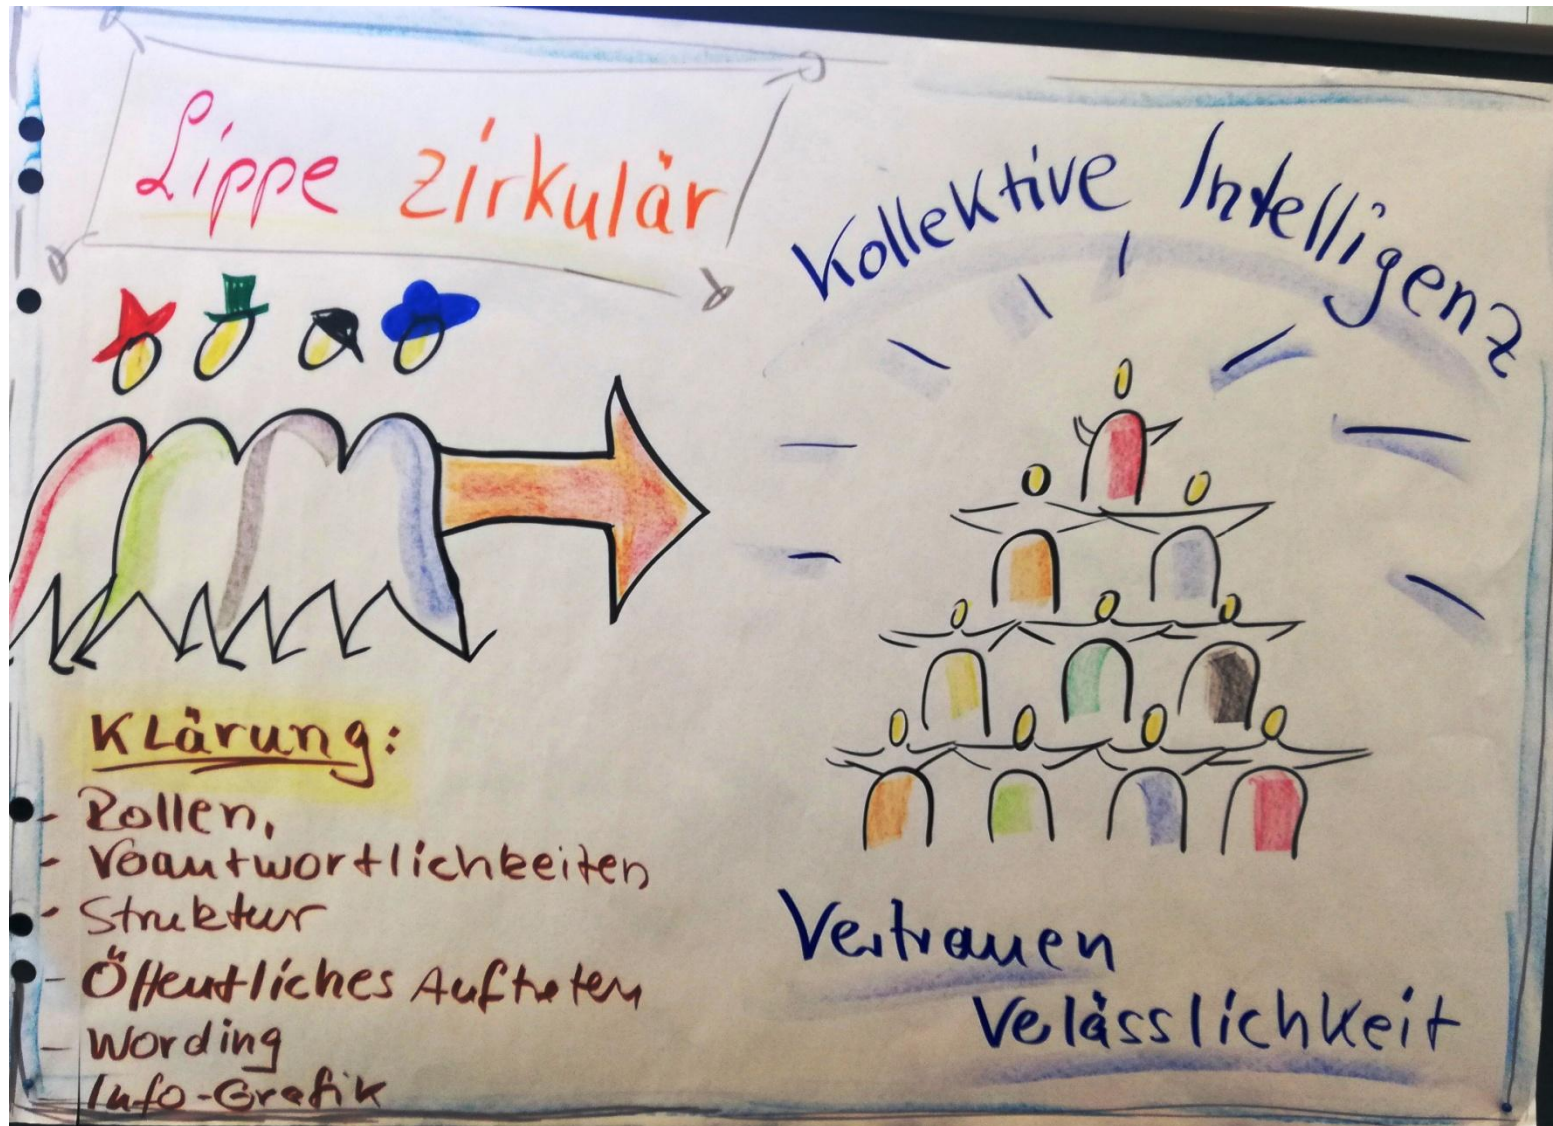 Lippe Zirkulär
Kollektive Intelligenz
Klärung:
- Rollen,
- Verantwortlichkeiten
- Struktur
- Öffentliches Auftreten
- Wording
Info-Grafik
Vertrauen
Velässlichkeit